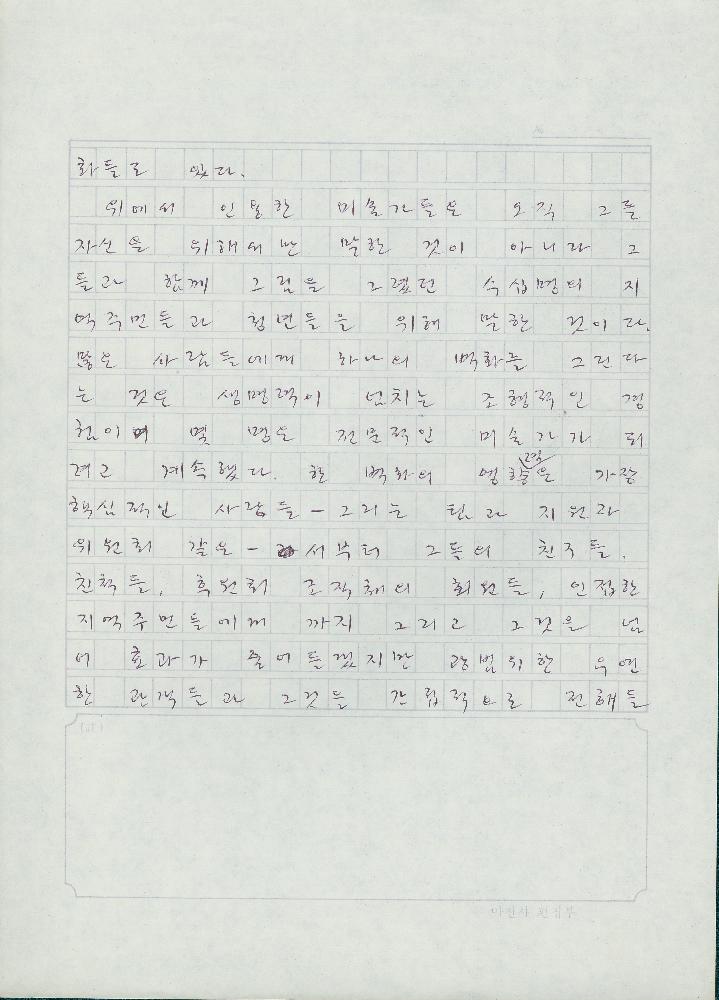 화들로 있다.
위에서 인용한 미술가들은 오직 그들
자신을 위해서만 말한 것이 아니라 그
들과 함께 그림을 그렸던 수십명의 지
역주민들과 청년들을 위해 말한 것이다.
많은 사람들에게 하나의 벽화를 그린다
는 것은 생명력이 넘치는 조형적인 경
험이며 몇 명은 전문적인 미술가가 되
려고 계속했다. 한 벽화의 영향은 가장
핵심적인 사람들 - 그리는 팀과 지원과
위원회 같은 - 서부터 그들의 친구들,
친척들, 후원회 조직체의 회원들, 인접한
지역주민들에게 까지 그리고 그것을 넘
어 효과가 줄어들겠지만 광범위한 우연
한 관객들과 그것들 간립적으로 전해들
마천사 편집부